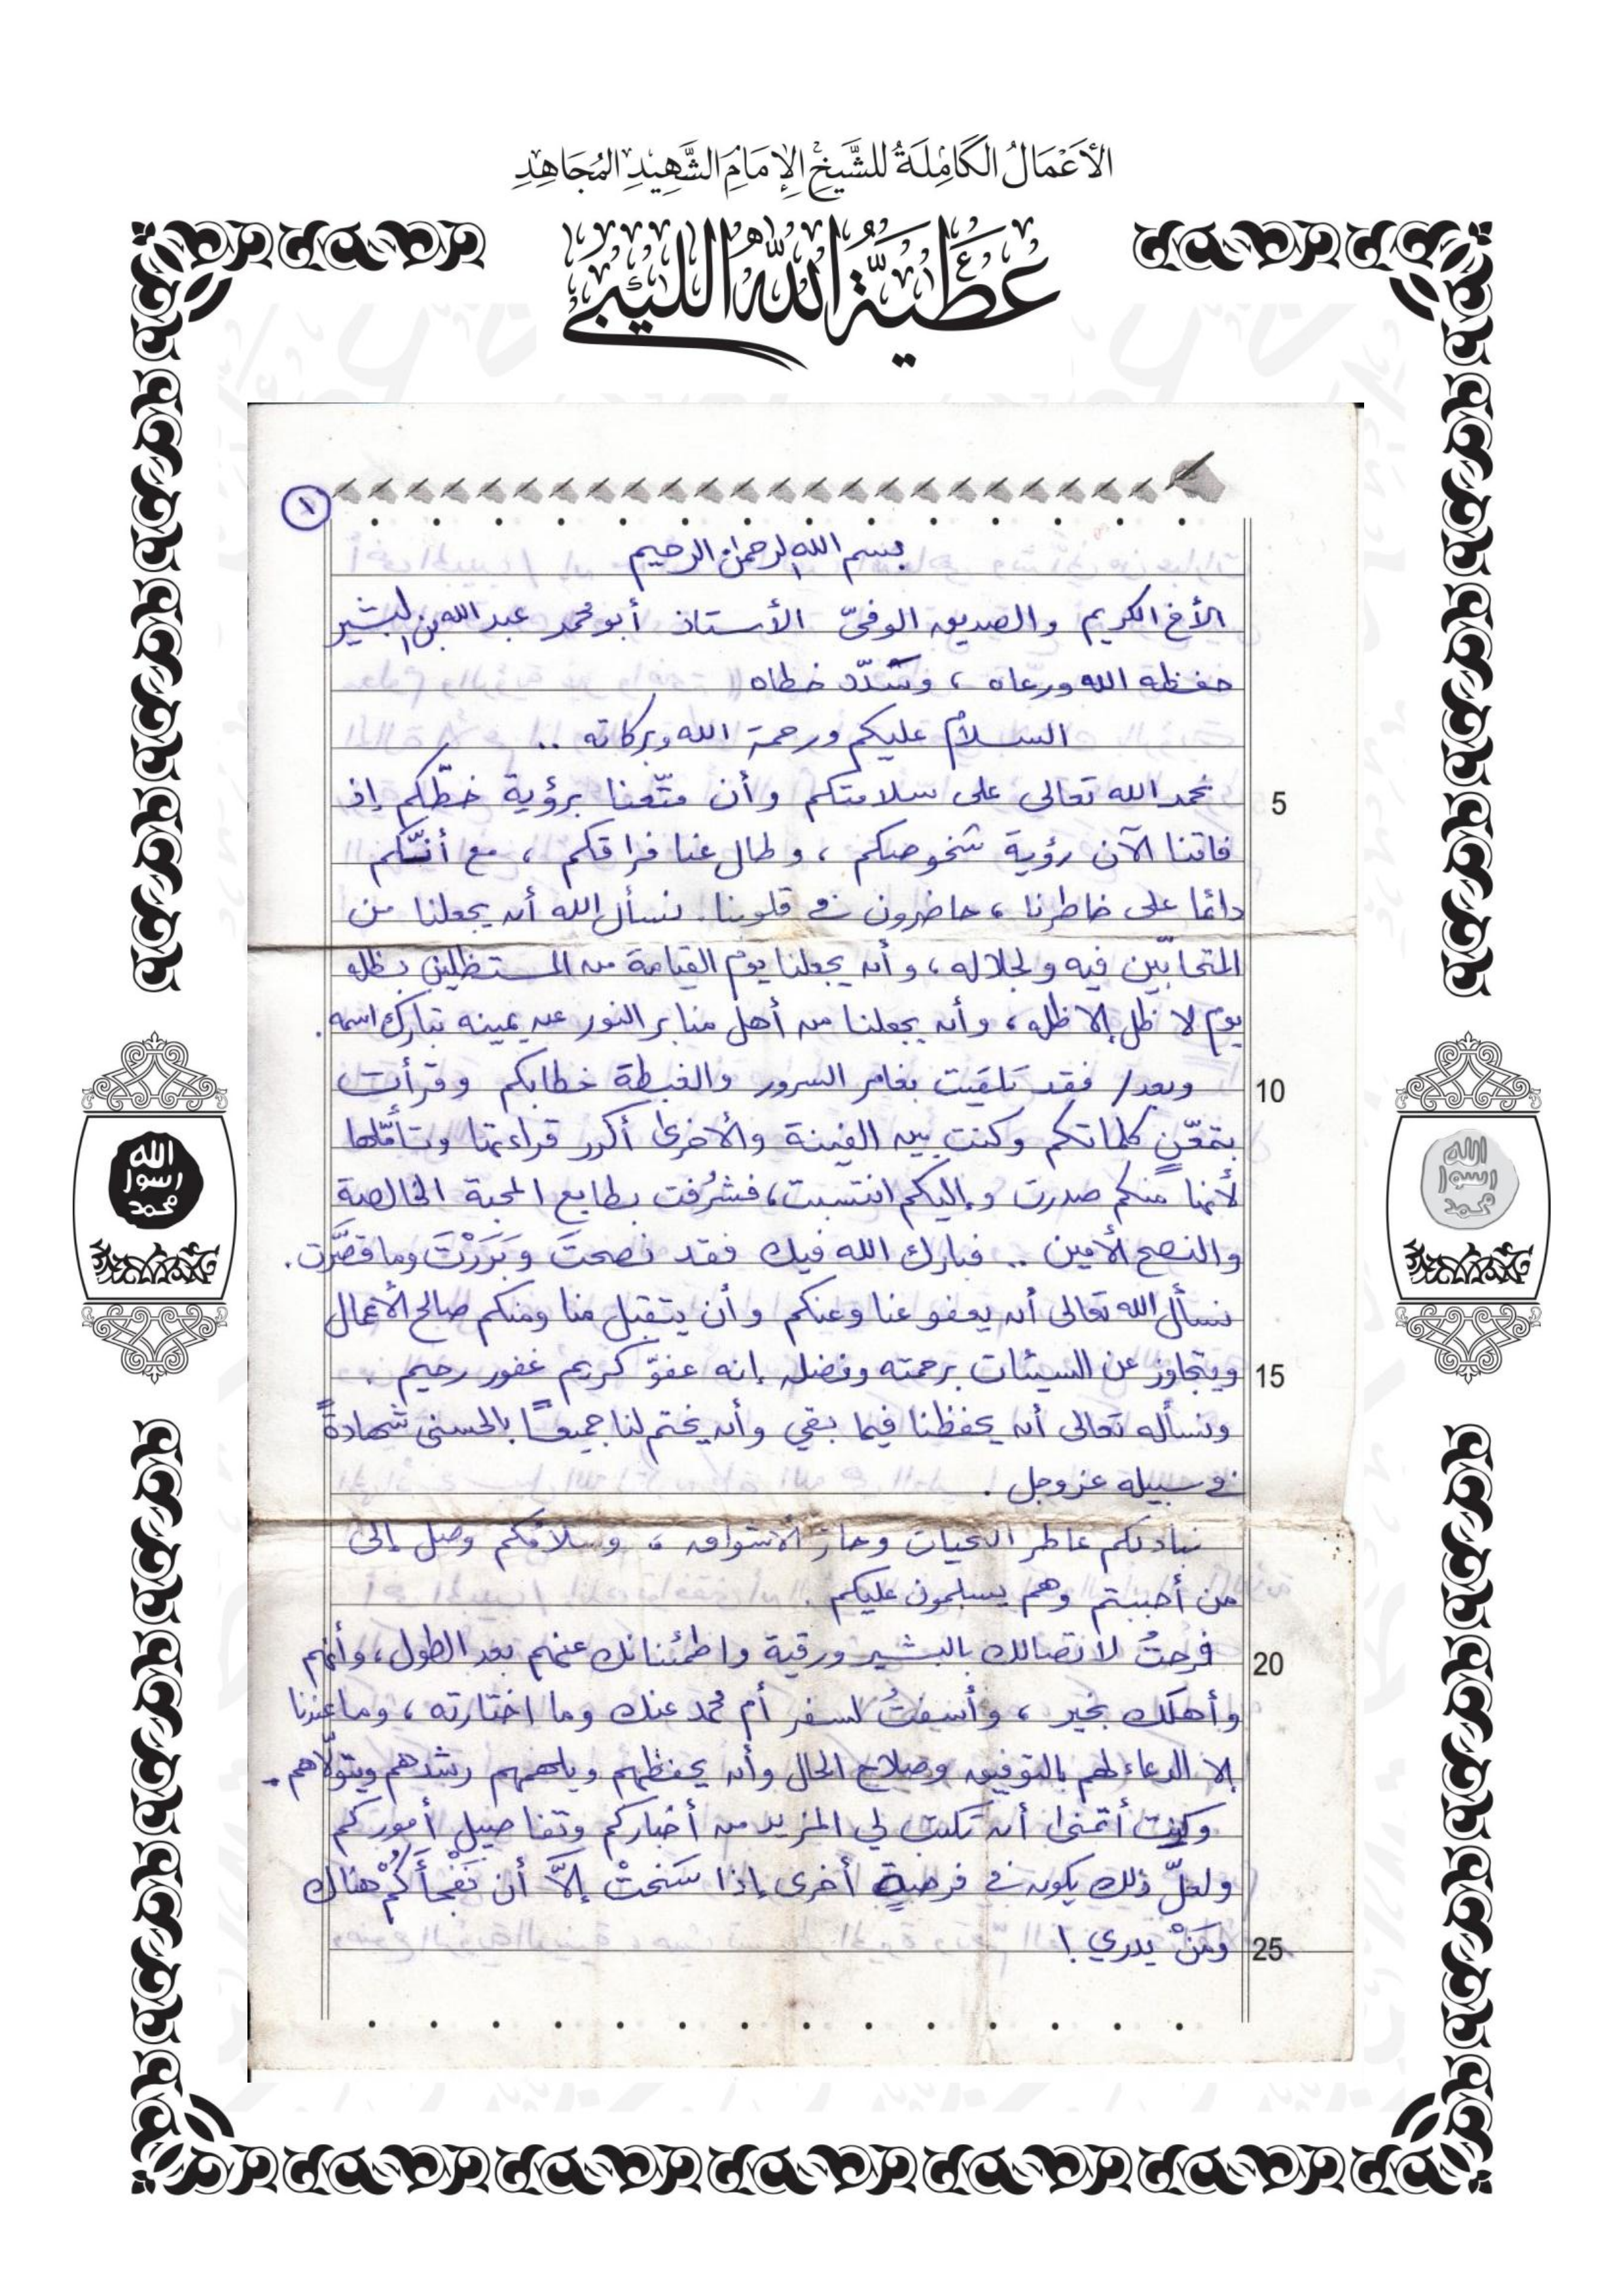 الأَعْمَالُ الكَامِلَةُ للشَّيخِ الإِمَامِ الشَّهِيدِ المُجَاهِدِ
عَطِيَّةُ اللَّه اللِّيبِيّ
١
بسم الله الرحمن الرحيم
الأخ الكريم والصديق الوفيّ الأستاذ أبو محمد عبد الله بن البشير
حفظه الله ورعاه ، وسَدّد خطاه
السلامُ عليكم ورحمة الله وبركاته ..
نحمد الله تعالى على سلامتكم وأن متّعنا برؤية خطّكم إذ
5
فاتنا الآن رؤية شخوصكم ، وطال عنا فراقكم ، مع أنّكم
دائما على خاطرنا ، حاضرون في قلوبنا. نسأل الله أن يجعلنا من
المتحابّين فيه ولجلاله ، وأن يجعلنا يوم القيامة من المستظلين بظله
يوم لا ظل إلا ظله ، وأن يجعلنا من أهل منابر النور عن يمينه تبارك اسمه .
وبعد/ فقد تلقيت بغامر السرور والغبطة خطابكم وقرأت
10
بتمعّنٍ كلماتكم وكنت بين الفينة والأخرى أكرر قراءتها وتأمّلها
لأنها منكم صدرت وإليكم انتسبت ، فشرُفت بطابع المحبة الخالصة
والنصح الأمين .. فبارك الله فيك فقد نصحتَ وَبَرَرْتَ وما قصَّرت .
نسأل الله تعالى أن يعفو عنا وعنكم وأن يتقبل منا ومنكم صالح الأعمال
ويتجاوز عن السيئات برحمته وفضله إنه عفوّ كريم غفور رحيم .
15
ونسأله تعالى أن يحفظنا فيما بقي وأن يختم لنا جميعًا بالحسنى شهادةً
في سبيله عز وجل .
نبادلكم عاطر التحيات وحار الأشواق ، وسلامُكم وصل إلى
من أحببتم وهم يسلمون عليكم .
فرحتُ لاتصالك بالبشير ورقية واطمئنانك عنهم بعد الطول ، وأنهم
20
وأهلك بخير ، وأسِفتُ لسفر أم محمد عنك وما اختارته ، وما عندنا
إلا الدعاء لهم بالتوفيق وصلاح الحال وأن يحفظهم ويلهمهم رشدهم ويتولّاهم .
وكنت أتمنى أن تكتب لي المزيد من أخباركم وتفاصيل أموركم
ولعلّ ذلك يكون في فرصةٍ أخرى إذا سَنَحتْ إلَّا أن نَفْجأَكُمْ هناك
ومَنْ يدري !
25
الله
رسول
محمد
الله
رسول
محمد